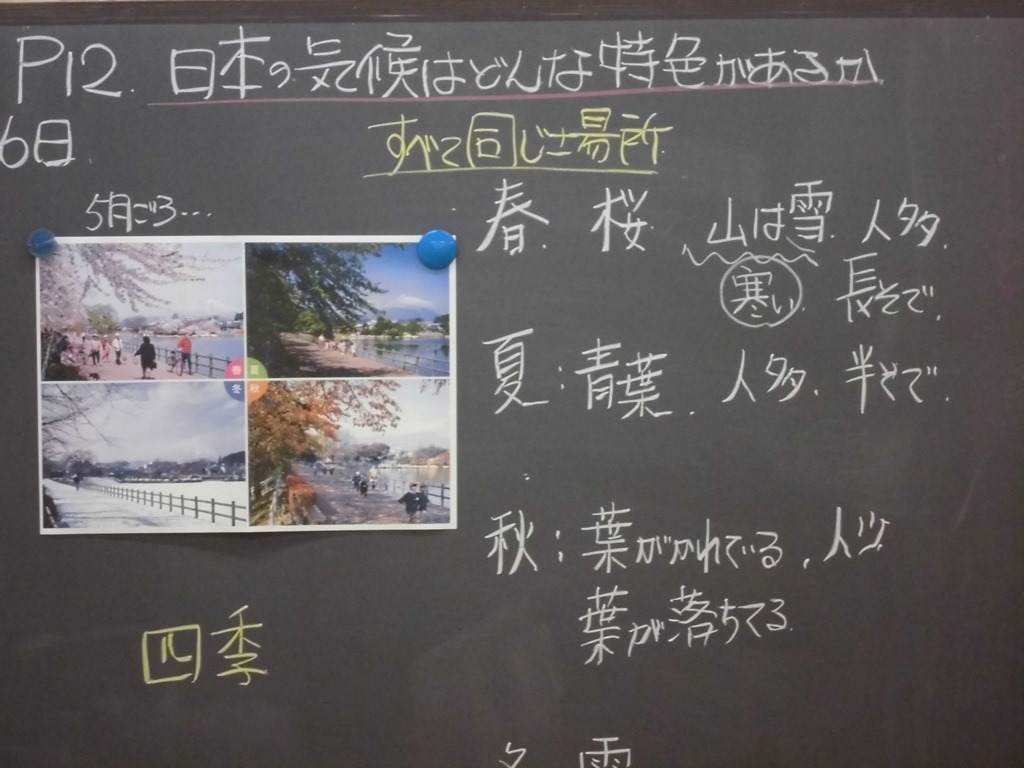 P12. 日本の気候はどんな特色があるか
6日
すべて同じ場所
5月ごろ...
春 夏
冬 秋
春. 桜 山は雪. 人多.
寒い 長そで.
夏: 青葉. 人多. 半そで.
秋: 葉がかれている. 人少
葉が落ちてる.
四季
冬 雪